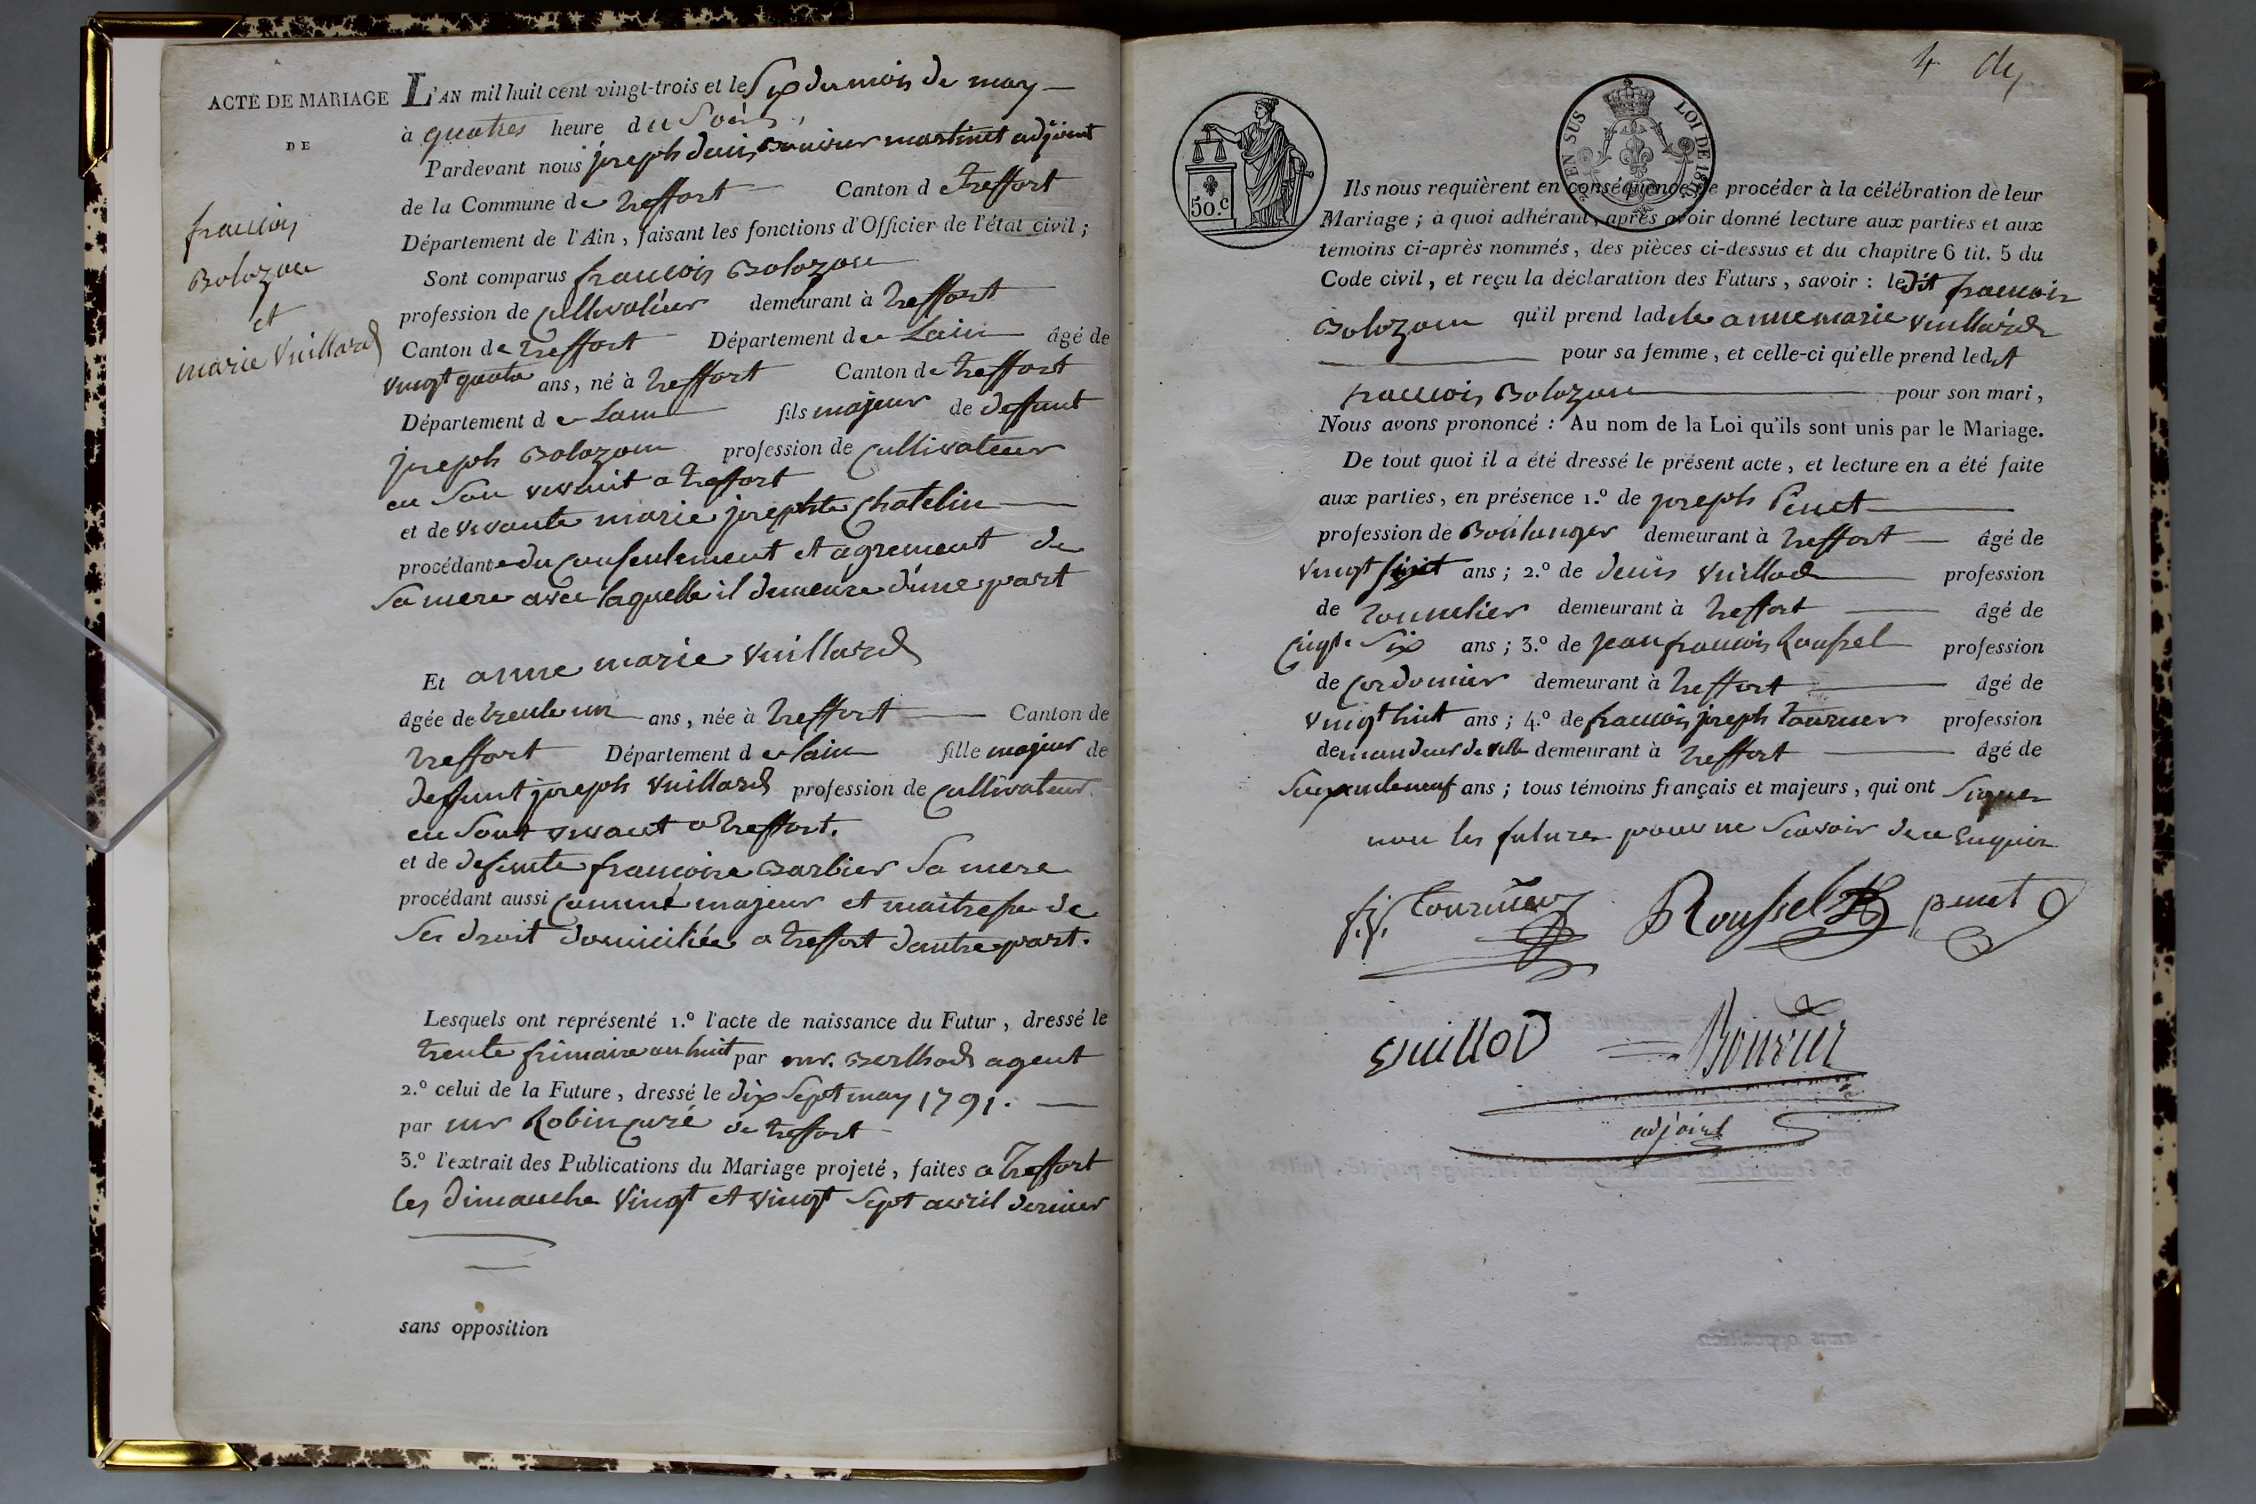 ACTE DE MARIAGE
DE
francois
Bolozon
et
marie Vuillard
L'AN mil huit cent vingt-trois et le Six du mois de may
à quatres heure du Soir,
Pardevant nous joseph denis Bouvier martinet adjoint
de la Commune de treffort Canton de treffort
Département de l'Ain, faisant les fonctions d'Officier de l'état civil ;
Sont comparus francois Bolozon
profession de Cultivateur demeurant à treffort
Canton de treffort Département de Lain âgé de
vingt quatre ans, né à treffort Canton de treffort
Département de Lain fils majeur de deffunt
joseph Bolozon profession de Cultivateur
en Son vivant a treffort
et de vivante marie josephte Chatelin
procédant du Consentement et agrement de
Sa mere avec laquelle il demeure d'une part
Et anne marie Vuillard
âgée de trente un ans, née à treffort Canton de
treffort Département de lain fille majeur de
deffunt joseph Vuillard profession de Cultivateur
en Sont vivant a treffort.
et de defunte francoise Barbier Sa mere
procédant aussi Comme majeur et maitresse de
Ses droit domiciliée a treffort d'autre part.
Lesquels ont représenté 1.º l'acte de naissance du Futur, dressé le
trente frimaire an huit par mr. Berthod agent
2.º celui de la Future, dressé le dix Sept may 1791.
par mr Robin curé de treffort
3.º l'extrait des Publications du Mariage projeté, faites a treffort
les dimanche Vingt et Vingt Sept avril dernier
sans opposition
4
EN SUS LOI DE 18
50.c
Ils nous requièrent en conséquence de procéder à la célébration de leur
Mariage ; à quoi adhérant, après avoir donné lecture aux parties et aux
témoins ci-après nommés, des pièces ci-dessus et du chapitre 6 tit. 5 du
Code civil, et reçu la déclaration des Futurs, savoir : le dit francois
Bolozon qu'il prend ladite anne marie Vuillard
pour sa femme, et celle-ci qu'elle prend ledit
francois Bolozon pour son mari,
Nous avons prononcé : Au nom de la Loi qu'ils sont unis par le Mariage.
De tout quoi il a été dressé le présent acte, et lecture en a été faite
aux parties, en présence 1.º de joseph Penet
profession de Boulanger demeurant à treffort âgé de
vingt ans ; 2.º de denis Vuillod profession
de tonnelier demeurant à treffort âgé de
Cinqte Six ans ; 3.º de jean francois Roussel profession
de Cordonier demeurant à treffort âgé de
vingt huit ans ; 4.º de francois joseph tourner profession
de mandeur de ville demeurant à treffort âgé de
ans ; tous témoins français et majeurs, qui ont Signer
non les futures pour ne Scavoir de ce Enquis
f.j. tourner Roussel penet
vuilloD Bouvier
adjoint